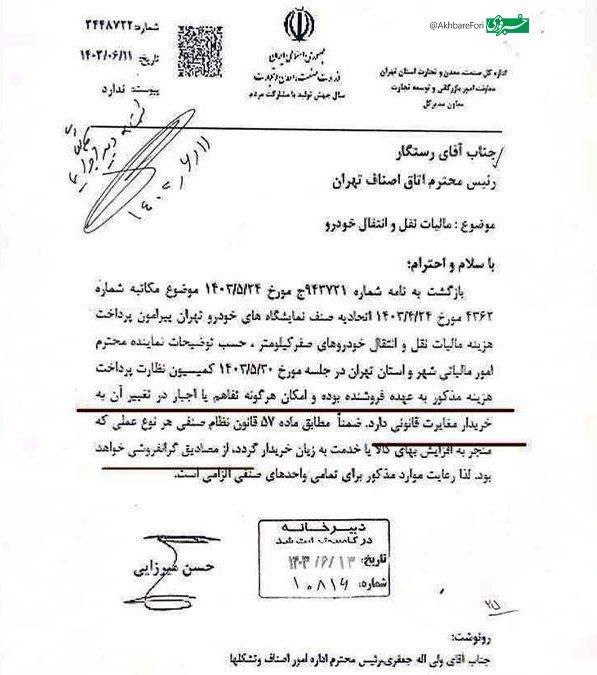 @AkhbareFori
خبرفوری
شماره: ۳۴۴۸۷۲۲
تاریخ: ۱۴۰۳/۰۶/۱۱
پیوست: ندارد
جمهوری اسلامی ایران
وزارت صنعت، معدن و تجارت
سال جهش تولید با مشارکت مردم
اداره کل صنعت، معدن و تجارت استان تهران
معاونت امور بازرگانی و توسعه تجارت
معاون مدیرکل
جناب آقای رستگار
رئیس محترم اتاق اصناف تهران
موضوع : مالیات نقل و انتقال خودرو
با سلام و احترام؛
بازگشت به نامه شماره ۹۴۳۷۲۱ج مورخ ۱۴۰۳/۵/۲۴ موضوع مکاتبه شماره
۴۳۶۲ مورخ ۱۴۰۳/۴/۲۴ اتحادیه صنف نمایشگاه های خودرو تهران پیرامون پرداخت
هزینه مالیات نقل و انتقال خودروهای صفرکیلومتر ، حسب توضیحات نماینده محترم
امور مالیاتی شهر و استان تهران در جلسه مورخ ۱۴۰۳/۵/۳۰ کمیسیون نظارت پرداخت
هزینه مذکور به عهده فروشنده بوده و امکان هرگونه تفاهم یا اجبار در تغییر آن به
خریدار مغایرت قانونی دارد. ضمناً مطابق ماده ۵۷ قانون نظام صنفی هر نوع عملی که
منجر به افزایش بهای کالا یا خدمت به زیان خریدار گردد، از مصادیق گرانفروشی خواهد
بود. لذا رعایت موارد مذکور برای تمامی واحدهای صنفی الزامی است.
حسن میرزایی
دبیرخانه
در کامپیوتر ثبت شد
تاریخ: ۱۴۰۳/۶/۱۳
شماره: ۱۰۸۱۴
رونوشت:
جناب آقای ولی اله جعفری،رئیس محترم اداره امور اصناف وتشکلها